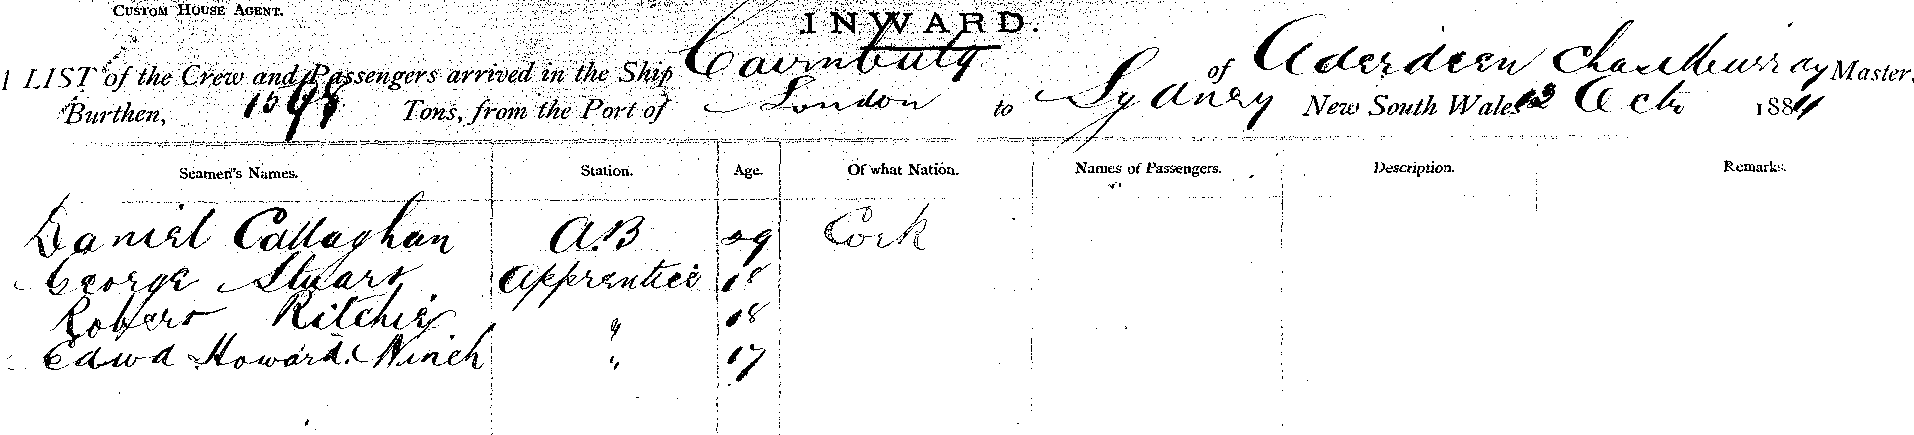 CUSTOM HOUSE AGENT.
INWARD.
A LIST of the Crew and Passengers arrived in the Ship Cairnbulg of Aberdeen Chas Murray Master,
Burthen, 1598 Tons, from the Port of London to Sydney New South Wales 12 Octr 1884
Seamen's Names. Station. Age. Of what Nation. Names of Passengers. Description. Remarks.
Daniel Callaghan A.B 29 Cork
George Stuart Apprentice 18
Robert Ritchie " 18
Edwd Howard Ninch " 17